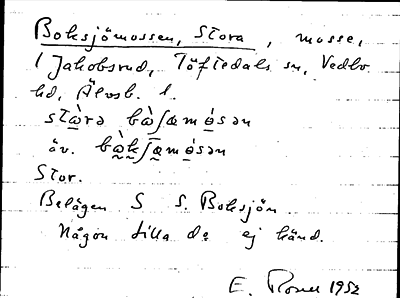 Boksjömossen, Stora, mosse,
i Jakobsrud, Töftedals sn, Vedbo
hd, Älvsb. l.
stɑ̀rə bɑ̀ʃœmɵ̀sən
äv. bɑ̀kʃœmɵ̀sən
Stor.
Belägen S S. Boksjön.
Någon Lilla d:o ej känd.
E. 1952